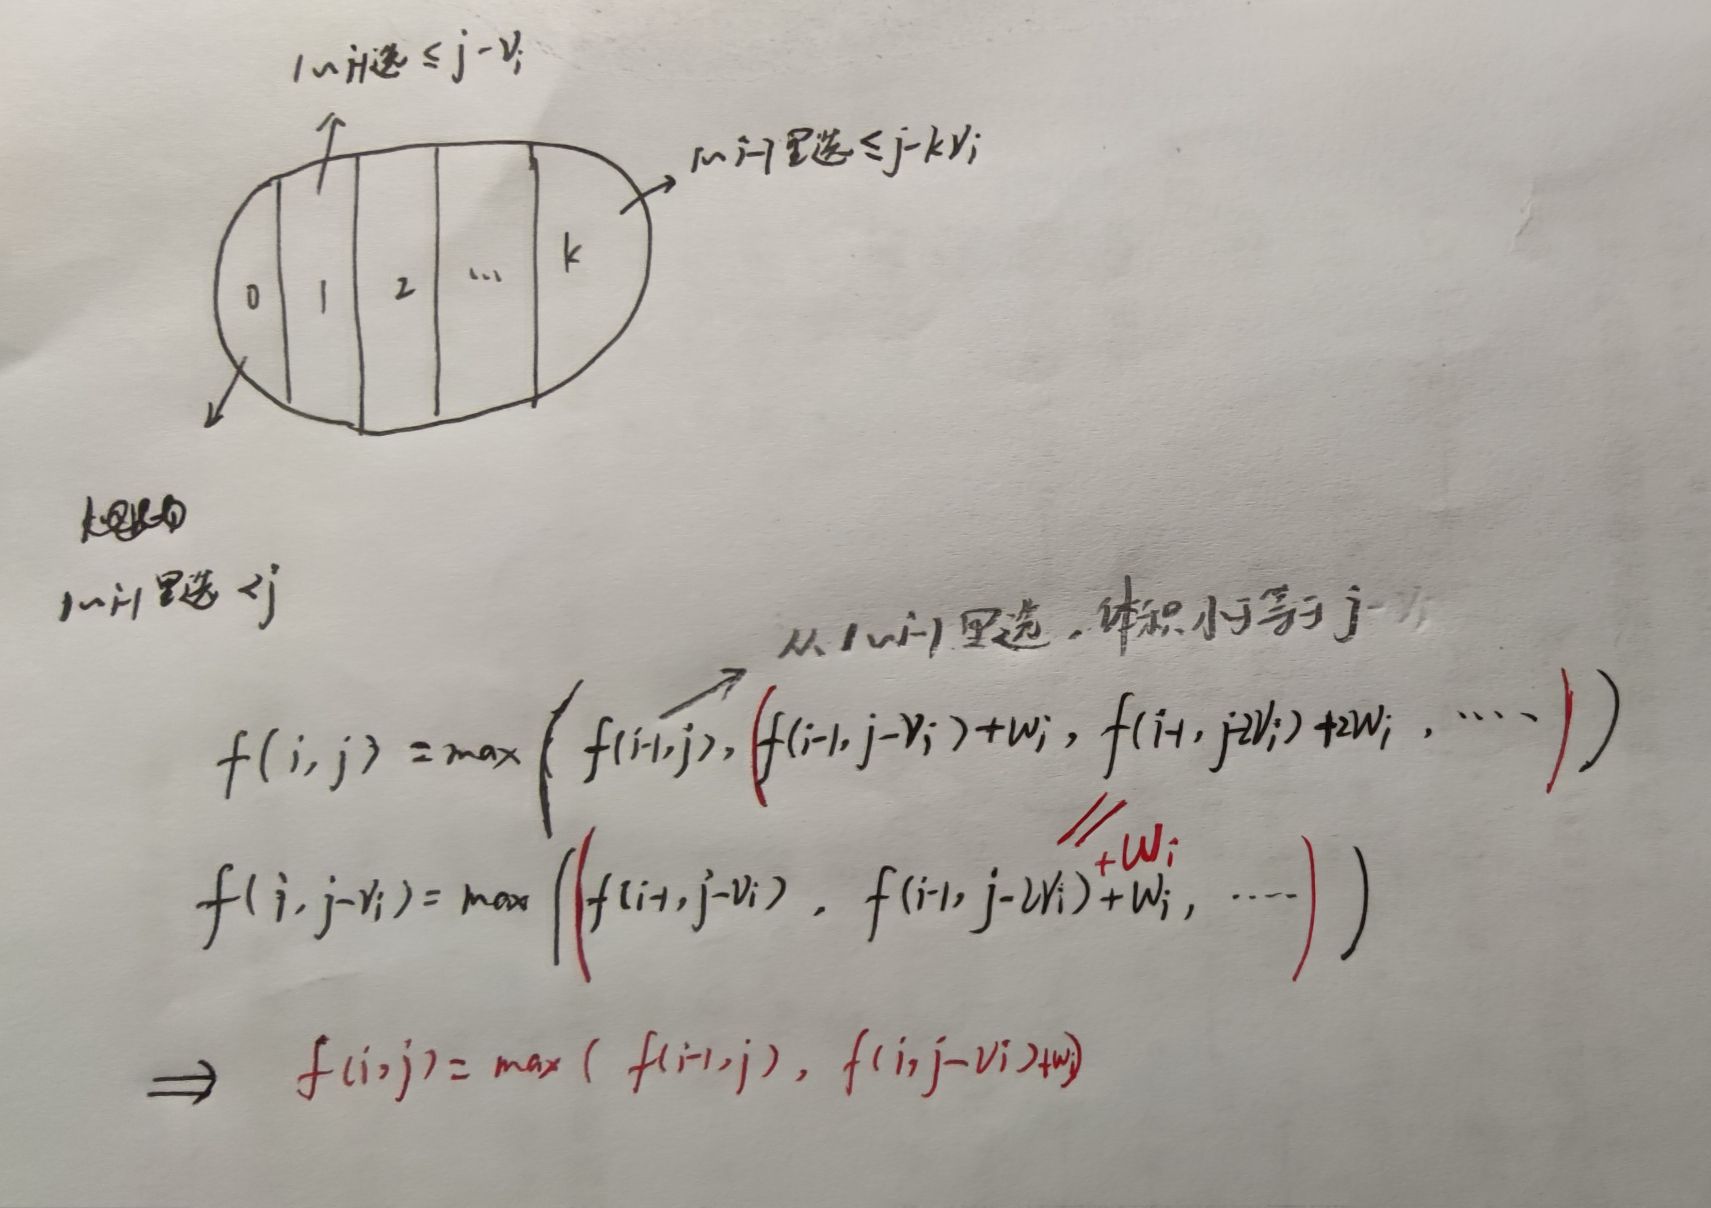 1~i-1选 ≤ j-vi
1~i-1里选 ≤ j-kvi
0 1 2 ... k
1~i-1里选 <j
从1~i-1里选，体积小于等于 j-vi
f(i,j) = max ( f(i-1,j), (f(i-1,j-vi)+wi, f(i-1,j-2vi)+2wi, ..... ) )
// +wi
f(i,j-vi) = max ( (f(i-1,j-vi), f(i-1,j-2vi)+wi, ..... ) )
⇒ f(i,j) = max( f(i-1,j), f(i,j-vi)+wi)